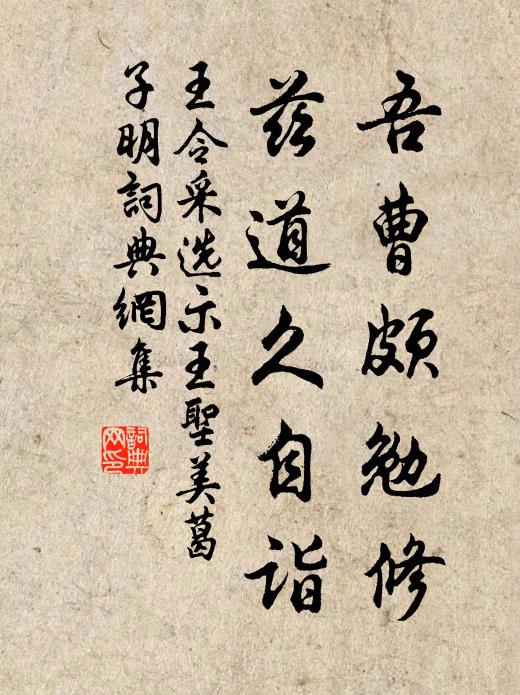 吾曹頗勉修
茲道久自詣
王令采选示王聖美葛
子明詞典網集
詞典網印